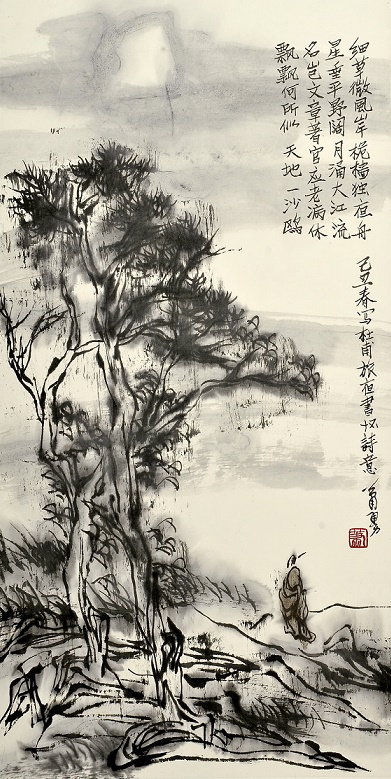 细草微風岸 桅檣独夜舟
星垂平野阔 月涌大江流
名岂文章著官应老病休
飄飄何所似 天地一沙鷗
己丑春写杜甫旅夜書怀詩意